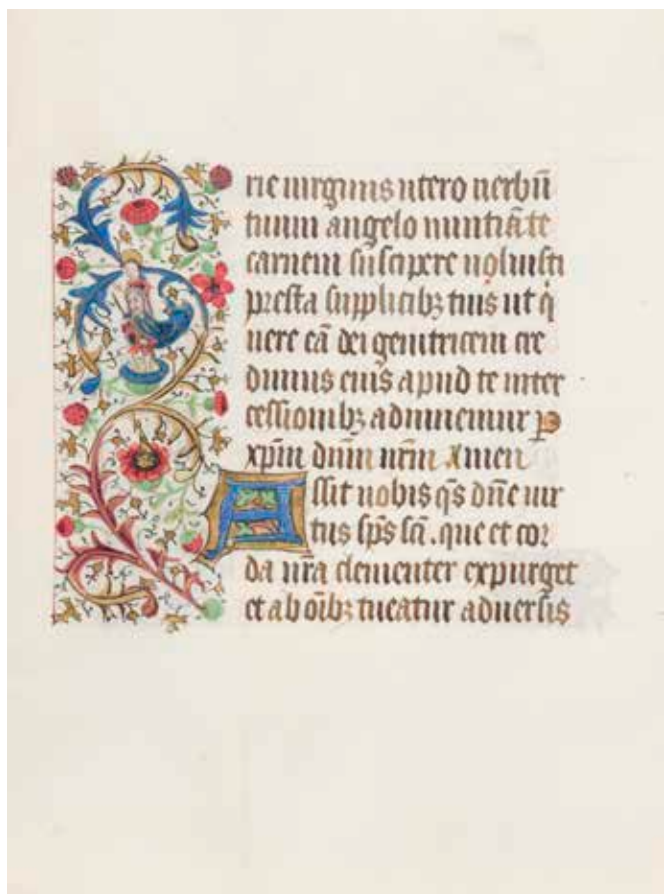 rie uirginis utero uerbū
tuum angelo nuntiāte
carnem suscipere uoluisti
presta supplicibꝫ tuis ut q̇
uere eā dei genitricem cre
dimus eius apud te inter
cessionibꝫ adiuuemur ꝑ
xp̄m dn̄m nr̄m Amen
Assit nobis qs̄ dn̄e uir
tus sp̄s sc̄i . que et cor
da nr̄a clementer expurget
et ab oībꝫ tueatur aduersis